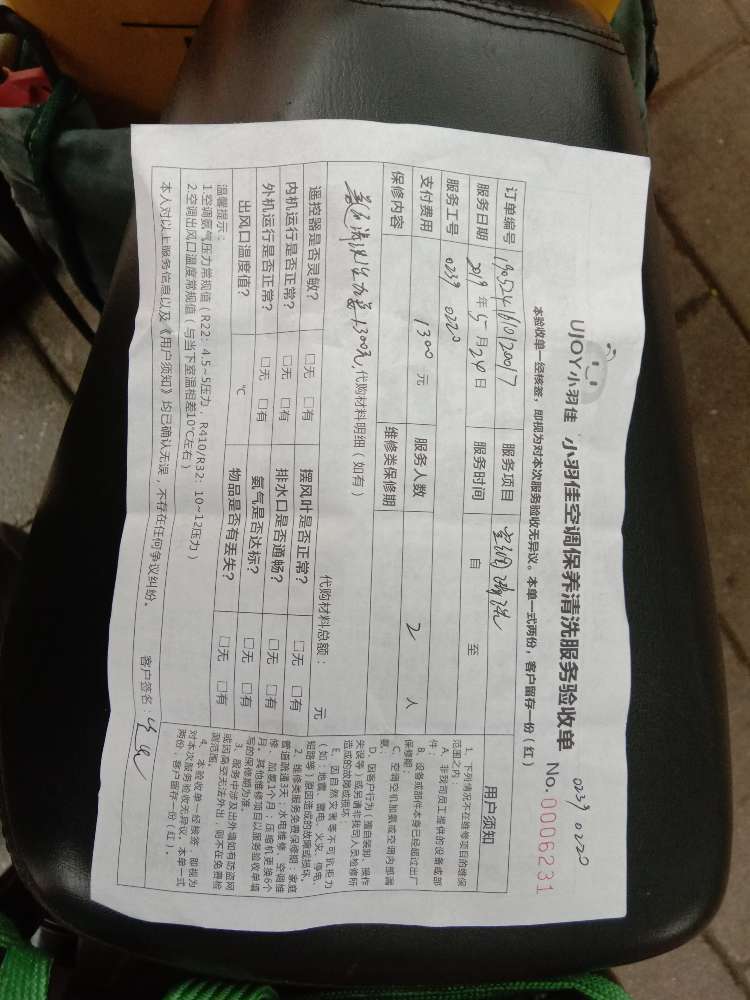 UJOY小羽佳 小羽佳空调保养清洗服务验收单
0239 0220
No. 0006231
本验收单一经核签，即视为对本次服务验收无异议。本单一式两份，客户留存一份（红）
订单编号 服务项目 空调清洗
服务日期 2019 年 5 月 24 日 服务时间 自 至
服务工号 0239 0220
支付费用 1300 元 服务人数 2 人
保修内容 维修类保修期
1300元，代购材料明细（如有）
代购材料总额： 元
遥控器是否灵敏？ □无 □有 摆风叶是否正常？ □无 □有
内机运行是否正常？ □无 □有 排水口是否通畅？ □无 □有
外机运行是否正常？ □无 □有 氨气是否达标？ □无 □有
出风口温度值？ ℃ 物品是否有丢失？ □无 □有
温馨提示：
1.空调氨气压力常规值（R22：4.5~5压力，R410/R32：10~12压力）
2.空调出风口温度常规值（与当下室温相差10℃左右）
本人对以上服务信息以及《用户须知》均已确认无误，不存在任何争议纠纷。
客户签名：
用户须知
1、下列情况不在维修项目的维保
范围之内：
A、非我司员工提供的设备或部
件；
B、设备或部件本身已经超过出厂
保修期；
C、空调空机加氨或空调内部漏
氨；
D、因客户行为（擅自装卸、操作
失误等）或另请非我司人员检修所
造成的故障或损坏；
E、因自然灾害等不可抗拒力
（如：地震、雷电、火灾、停电、
短路等）原因造成的故障或损坏。
2、维修类服务免费保修期：家庭
管道疏通3天；水电维修、空调维
修、加氨1个月；压缩机更换6个
月。其他维修项目以服务验收单填
写的保修期为准。
3、服务中涉及出外墙如有防盗网
或因高空无法外出，则不在免费检
测范围。
4、本验收单一经核签，即视为
对本次服务验收无异议。本单一式
两份，客户留存一份（红）。